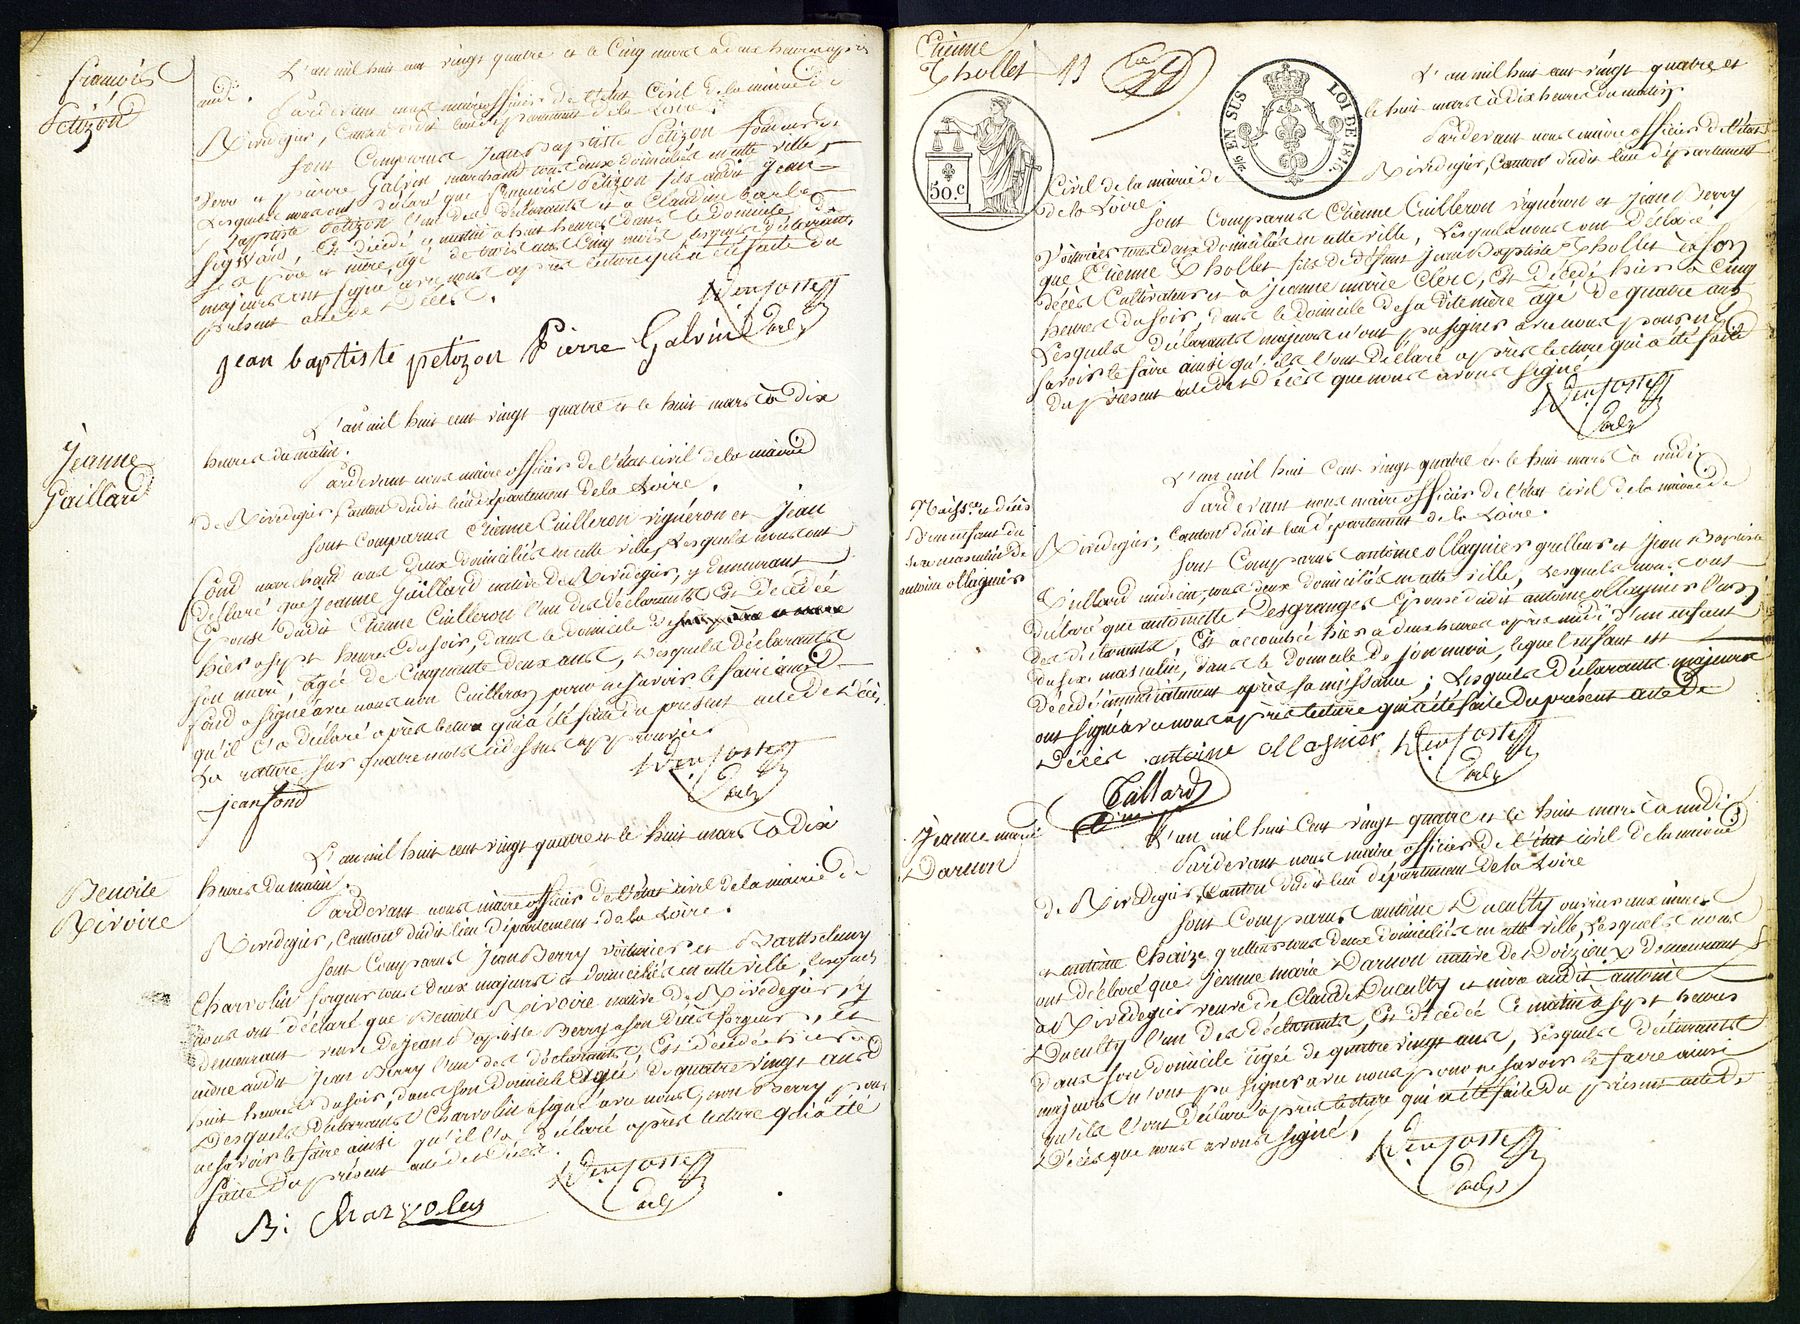 françois
Petizon
L'an mil huit cent vingt quatre et le Cinq mars à deux heures après
midi.
Pardevant nous maire officier de l'état Civil de la mairie de
Rivedegier, Canton dudit lieu département de la Loire.
Sont Comparus Jean baptiste Petizon fondeur de
Verre et pierre Galvin marchand tous deux domiciliés en cette ville,
Lesquels nous ont déclaré que françois Petizon fils audit Jean
Baptiste Petizon l'un des déclarants et à Claudine
est décédé ce matin à huit heures dans le domicile de
ses père et mère, agé de trois ans Cinq mois, lesquels déclarants
majeurs ont signé avec nous après lecture qui a été faite du
présent acte de Décès.
jean baptiste petizon Pierre Galvin
Jeanne
Gaillard
L'an mil huit cent vingt quatre et le huit mars à dix
heures du matin.
Pardevant nous maire officier de l'état civil de la mairie
de Rivedegier, Canton dudit lieu département de la Loire.
Sont Comparus Etienne Cuilleron vigneron et Jean
fond marchand tous deux domiciliés en cette ville, Lesquels nous ont
déclaré que Jeanne Gaillard native de Rivedegier, y demeurant
Epouse dudit Etienne Cuilleron l'un des déclarants Est décédée
hier à sept heures du soir, dans le domicile de
son mari, agée de Cinquante deux ans, Lesquels déclarants
fond a signé avec nous non Cuilleron pour ne savoir le faire ainsi
qu'il l'a déclaré après lecture qui a été faite du présent acte de Décès,
La rature sur quatre mots cidessus approuvée
jean fond
Benoite
Rivoire
L'an mil huit cent vingt quatre et le huit mars à dix
heures du matin.
Pardevant nous maire officier de l'état civil de la mairie de
Rivedegier, Canton dudit lieu département de la Loire.
Sont Comparus Jean Berry voiturier et Barthelemy
Charvolin forgeur tous deux majeurs et domiciliés en cette ville, lesquels
nous ont déclaré que Benoite Rivoire native de Rivedegier, y
demeurant veuve de Jean Baptiste Berry à son décès forgeur, et
mère audit Jean Berry l'un des déclarants, Est décédée hier à
huit heures du soir, dans son domicile agée de quatre vingt ans
Lesquels déclarants Charvolin a signé avec nous, non Berry pour
ne savoir le faire ainsi qu'il l'a déclaré après lecture qui a été
faite du présent acte de décès.
B: Charvolin
Etienne
Thollet
EN SUS LOI DE 1816.
50.c
L'an mil huit cent vingt quatre et
le huit mars à dix heures du matin
Pardevant nous maire officier de l'état
Civil de la mairie de Rivedegier, Canton dudit lieu département
de la Loire.
Sont Comparus Etienne Cuilleron vigneron et Jean Berry
Voiturier tous deux domiciliés en cette ville, Lesquels nous ont déclaré
que, Etienne Thollet fils de défunt Jean Baptiste Thollet à son
décès Cultivateur et à Jeanne marie Clerc, Est décédé hier à Cinq
heures du soir, dans le domicile de sa dite mère agé de quatre ans
Lesquels déclarants majeurs n'ont pu signer avec nous pour ne
savoir le faire ainsi qu'ils l'ont déclaré après lecture qui a été faite
du présent acte de décès que nous avons signé
Naiss.ce et décès
d'un enfant du
sexe masculin de
antoine ollagnier
L'an mil huit Cent vingt quatre et le huit mars à midi
Pardevant nous maire officier de l'état civil de la mairie de
Rivedegier, Canton dudit lieu département de la Loire.
Sont Comparus antoine ollagnier grilleur et Jean Baptiste
médecin, tous deux domiciliés en cette ville, Lesquels nous ont
déclaré que antoinette Desgranges Epouse dudit antoine ollagnier l'un
des déclarants, Est accouchée hier à deux heures après midi d'un enfant
du sexe masculin, dans le domicile de son mari, lequel enfant est
décédé immédiatement après sa naissance; Lesquels déclarants majeurs
ont signé avec nous après lecture qui a été faite du présent acte de
Décès antoine ollagnier
Jeanne marie
Darnon
L'an mil huit Cent vingt quatre et le huit mars à midi
Pardevant nous maire officier de l'état civil de la mairie
de Rivedegier, Canton dudit lieu département de la Loire
Sont Comparus antoine Ducully ouvrier aux mines
et antoine Chaize grilleur tous deux domiciliés en cette ville, Lesquels nous
ont déclaré que Jeanne marie Darnon native de Doizieux demeurant
à Rivedegier veuve de Claude Ducully et mère audit antoine
Ducully l'un des déclarants, Est décédée ce matin à sept heures
dans son domicile agée de quatre vingt ans, Lesquels déclarants
majeurs n'ont pu signer avec nous pour ne savoir le faire ainsi
qu'ils l'ont déclaré après lecture qui a été faite du présent acte de
Décès que nous avons signé.